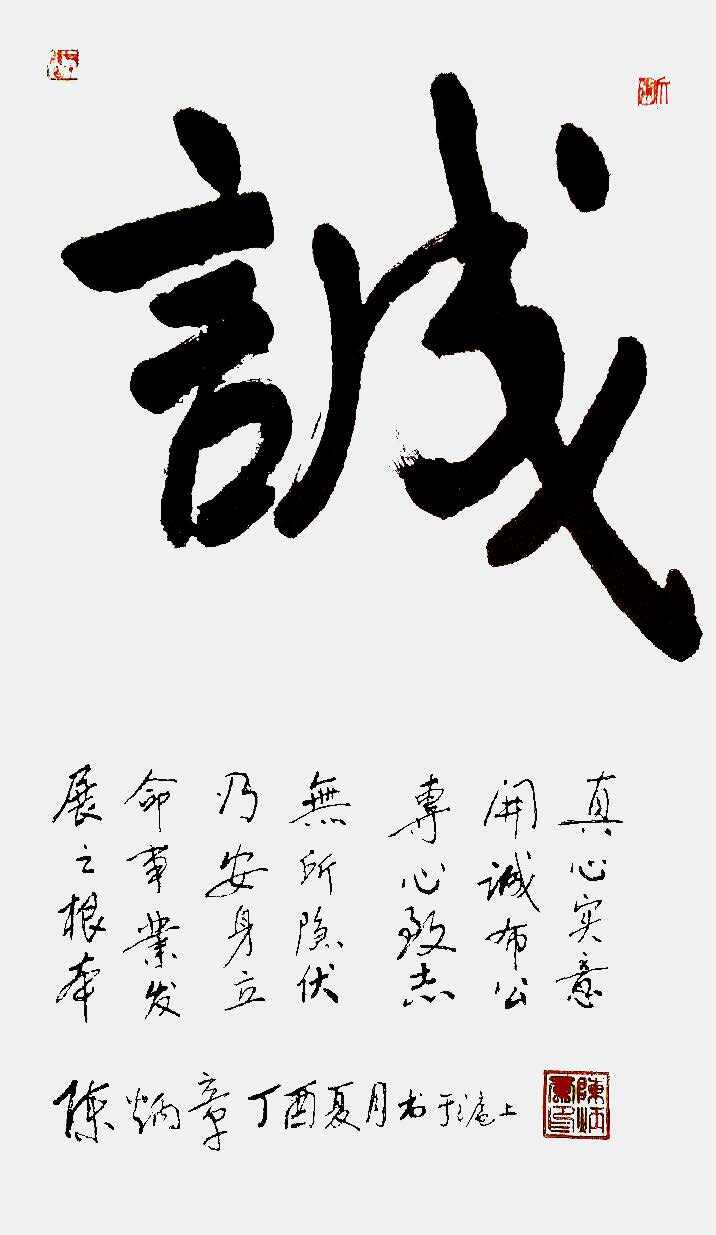 誠
真心实意
開誠布公
專心致志
無所隐伏
乃安身立
命事業发
展之根本
陳炳章丁酉夏月书于沪上